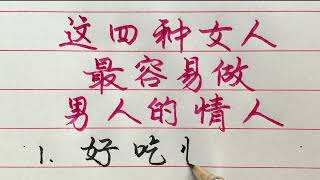 这四种女人
最容易做
男人的情人
1. 好吃